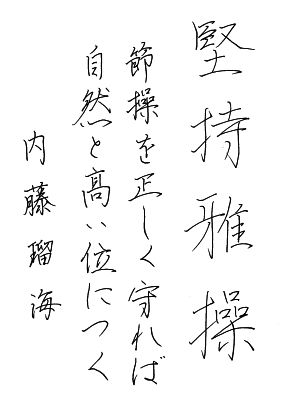 堅持雅操
節操を正しく守れば
自然と高い位につく
内藤瑠海